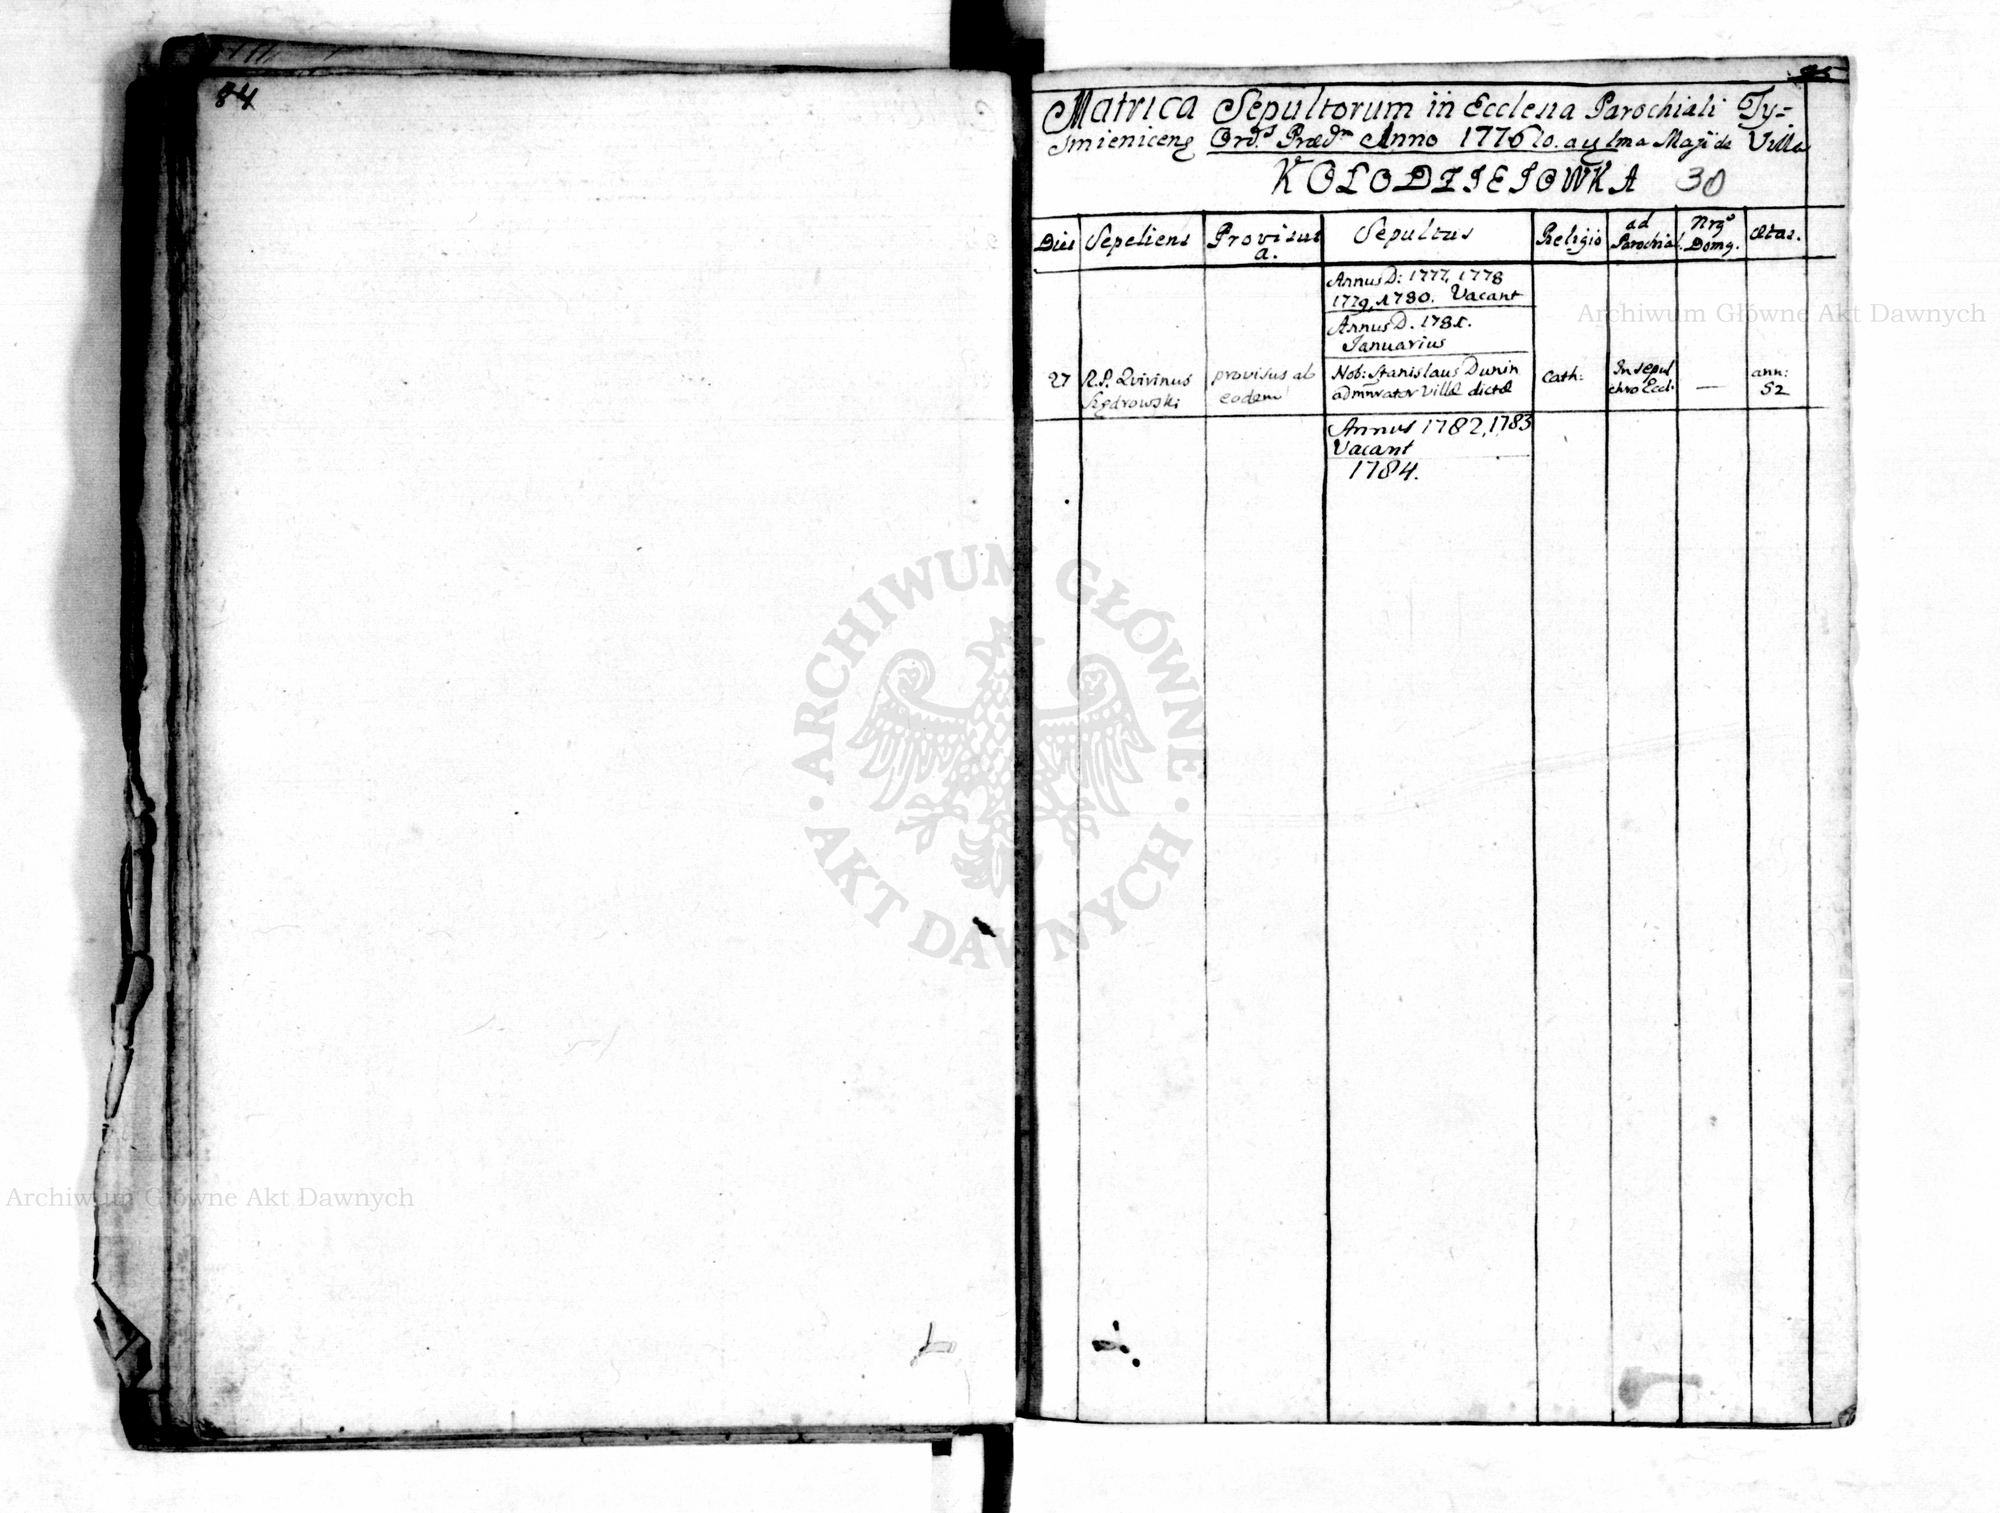 84
Matrica Sepultorum in Ecclesia Parochiali Ty=
smienicens Ord.s Præd.m Anno 1776to. a 1ma Maji de Villa
KOLODZIEIOWKA 30
Dies Sepeliens Provisus a. Sepultus Religio ad Parochial. Nrs Domg. ætas.
Annus D: 1777, 1778
1779, 1780. Vacant
Annus D. 1781.
Januarius
27 R.P. Qvirinus provisus ab Nob: Stanislaus Dunin Cath: In sepul — ann:
eodem admnrator Villæ dictæ chro Eccl: 52
Annus 1782, 1783
Vacant
1784.
ARCHIWUM GŁÓWNE
AKT DAWNYCH
Archiwum Główne Akt Dawnych
Archiwum Główne Akt Dawnych